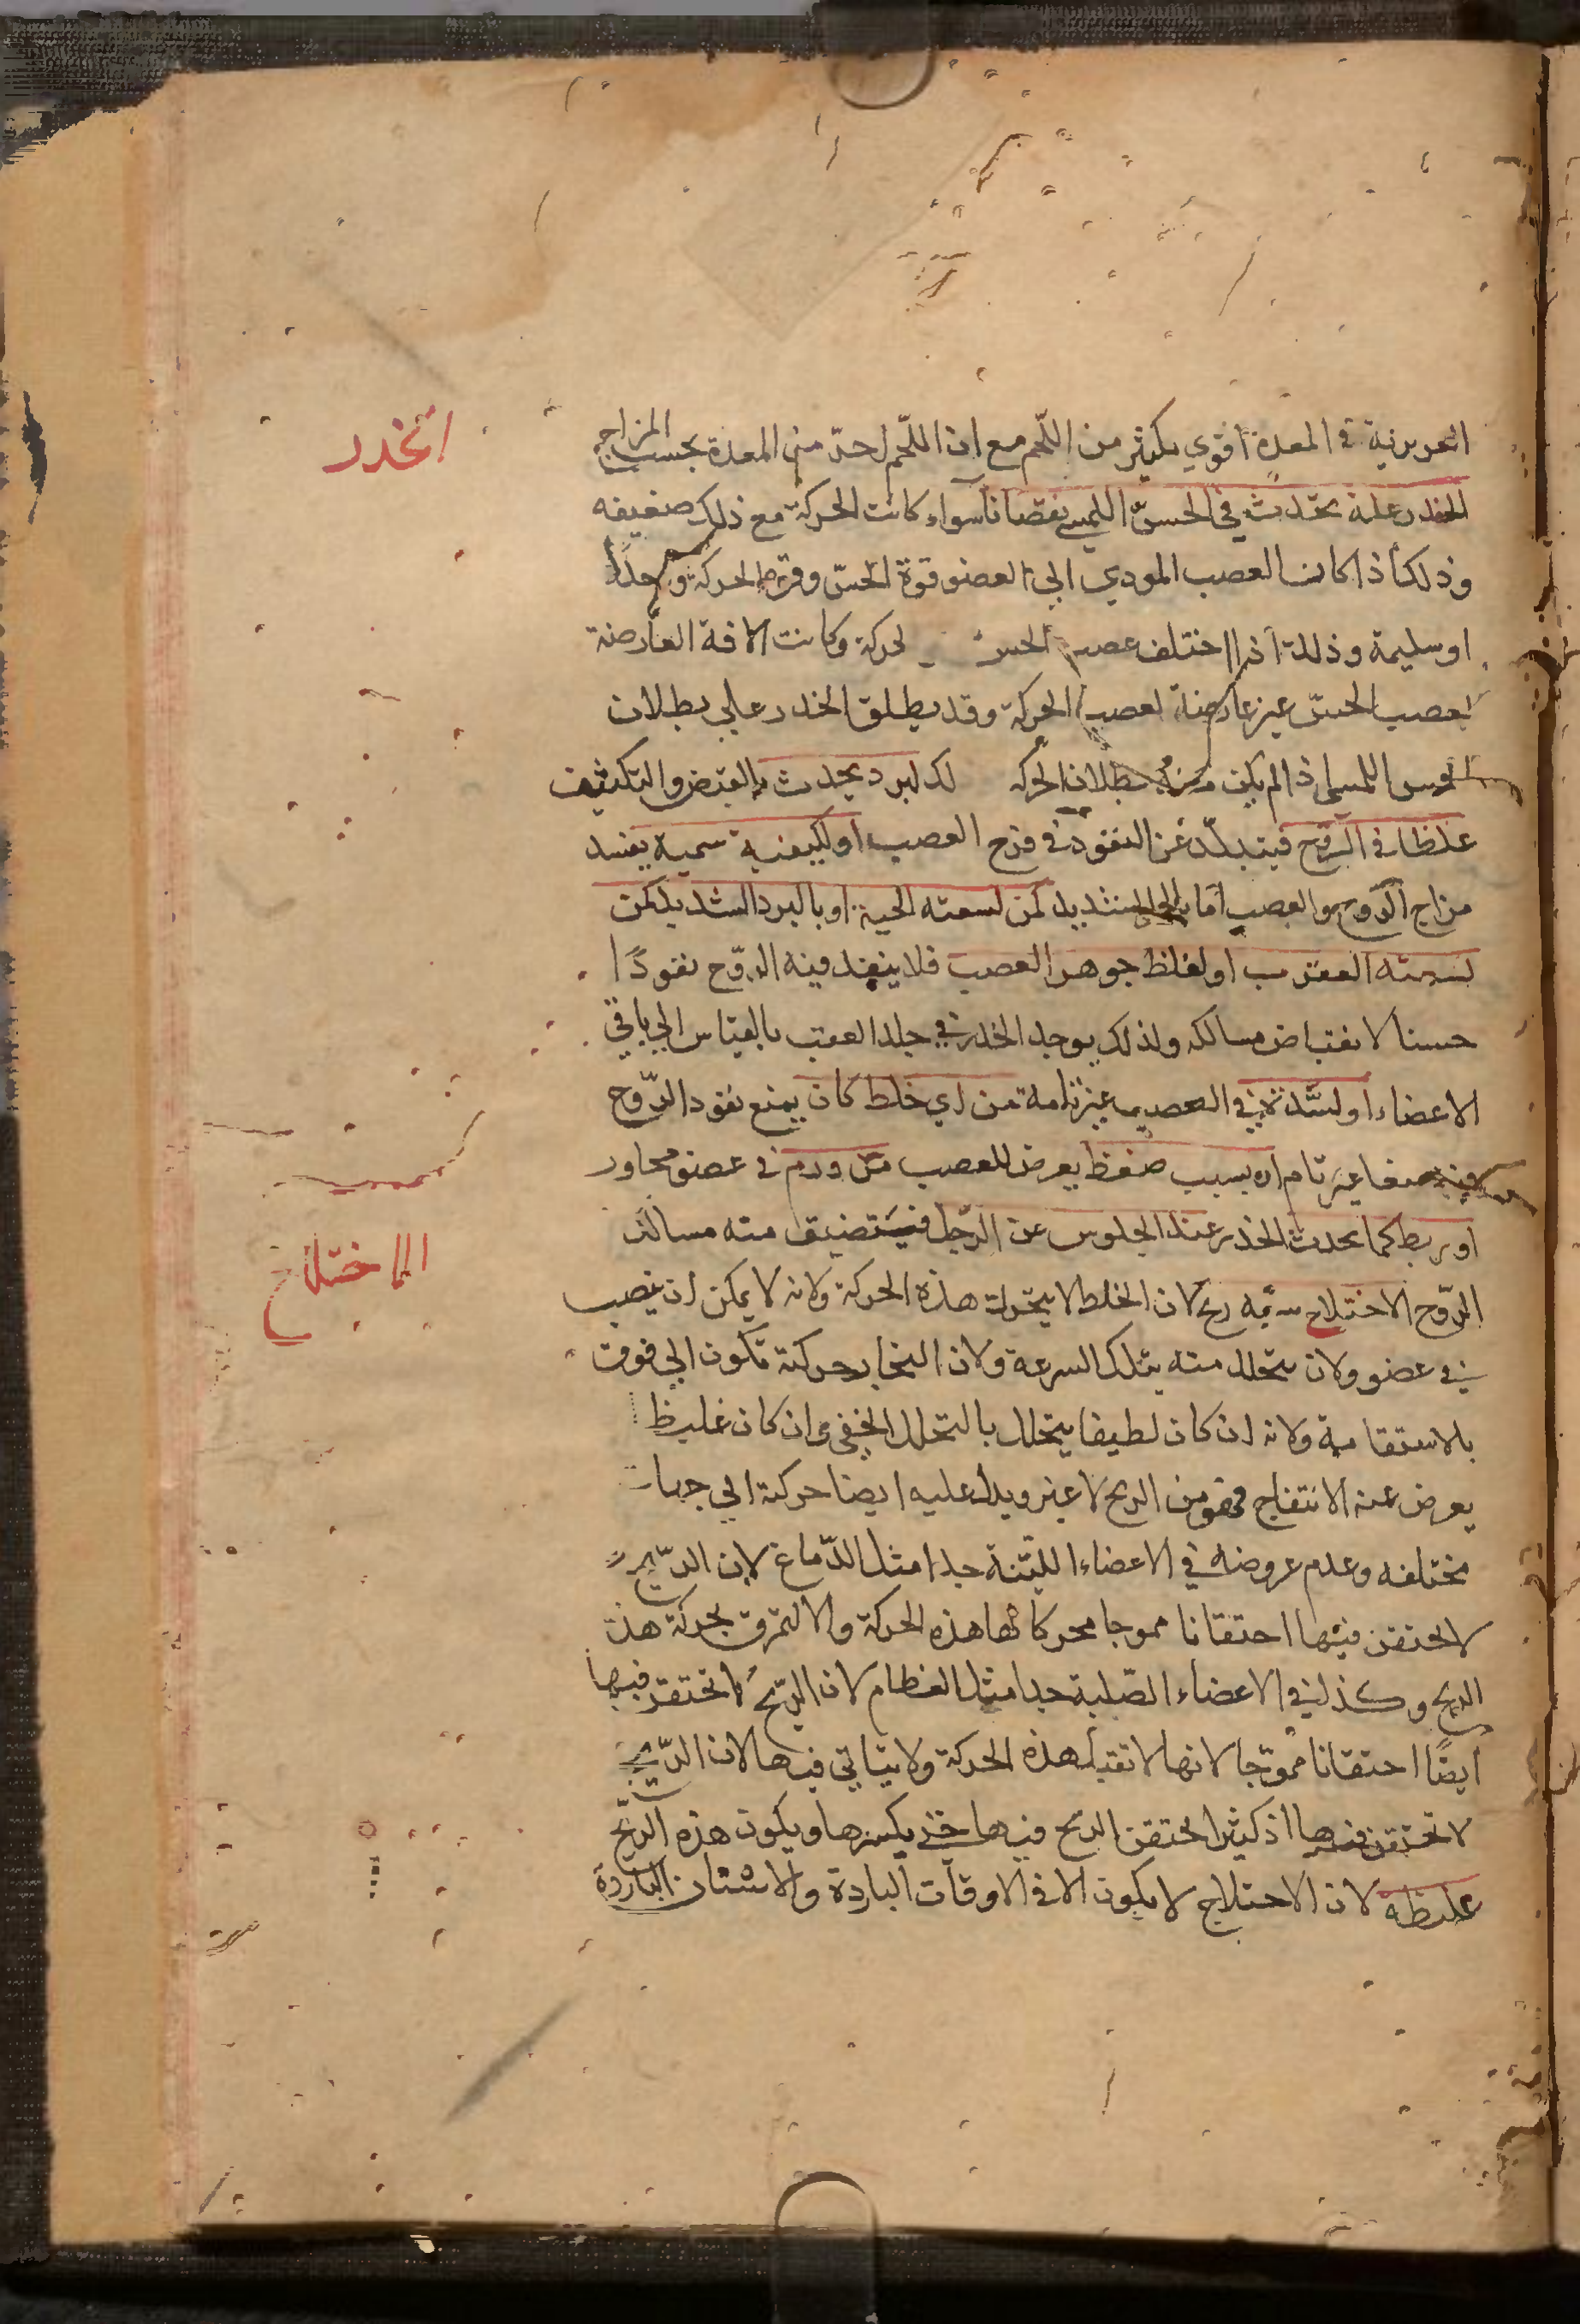 الخدر
الغريزية في المعدة اقوي بكثير من اللّحم مع ان اللّحم احدّ من المعدة بحسب المزاج
الخدر علة تحدث في الحسّ اللمسي نقصانا سواء كانت الحركة مع ذلك ضعيفه
وذلك اذا كان العصب المودي الي العضو قوة الحسّ وقوة الحركة واحدًا
او سليمة وذلك اذا اختلف عصب الحس لحركة وكانت الافة العارضة
لعصب الحسّ غير عارضة لعصب الحركة وقد يطلق الخدر علي بطلان
اللمسي اذا لم يكن بطلان الحركه لبرد يحدث بالقبض والتكثيف
غلظا في الرّوح فيتبلّد عن النفوذ في فرج العصب او لكيفية سمية يفسد
مزاج الرّوح والعصب اما الشديد كمن لسعته الحية او بالبرد الشديد كمن
لسعته العقرب او لغلظ جوهر العصب فلا ينفذ فيه الروّح نفوذًا
حسنا لانقباض مسالكه ولذلك يوجد الخدر في جلد العقب بالقياس الي باقي
الاعضاء او لسّدة في العصب غير تامة من اي خلط كان يمنع نفوذ الرّوح
فيه منعا غير تام او بسبب ضغط يعرض للعصب من ورم في عضو مجاور
او ربط كما يحدث الخدر عند الجلوس عن الرّجل فيتضيق منه مسالك
الاختلاج
الروّح الاختلاج سببه ريح لان الخلط لا يتحرك هذه الحركة ولانه لا يمكن ان ينصب
في عضو ولان يتحلل منه بتلك السرعة ولان البخار حركته تكون الي فوق
بالاستقامة ولانه ان كان لطيفا يتحلل بالتحلل الخفي وان كان غليظا
يعرض عنه الانتفاخ فهو من الريح لا غير ويدل عليه ايضا حركته الي جهات
مختلفه وعدم عروضه في الاعضاء الليّنة جدا مثل الدّماغ لان الرّيح
لا تحتقن فيها احتقانا مموجا محركا لها هذه الحركة والا لتمزق بحركة هذه
الريح وكذلك في الاعضاء الصّلبة جدا مثل العظام لان الريّح لا تحتقن فيها
ايضًا احتقانا مموّجا لانها لا تقبل هذه الحركة ولا يتاتي فيها لان الرّيح
لا تحتقن فيها اذ كثيرا تحتقن الريح فيها حتي يكسرها ويكون هذه الريّح
غليظة لان الاختلاج لا يكون الا في الاوقات الباردة والاسنان الباردة